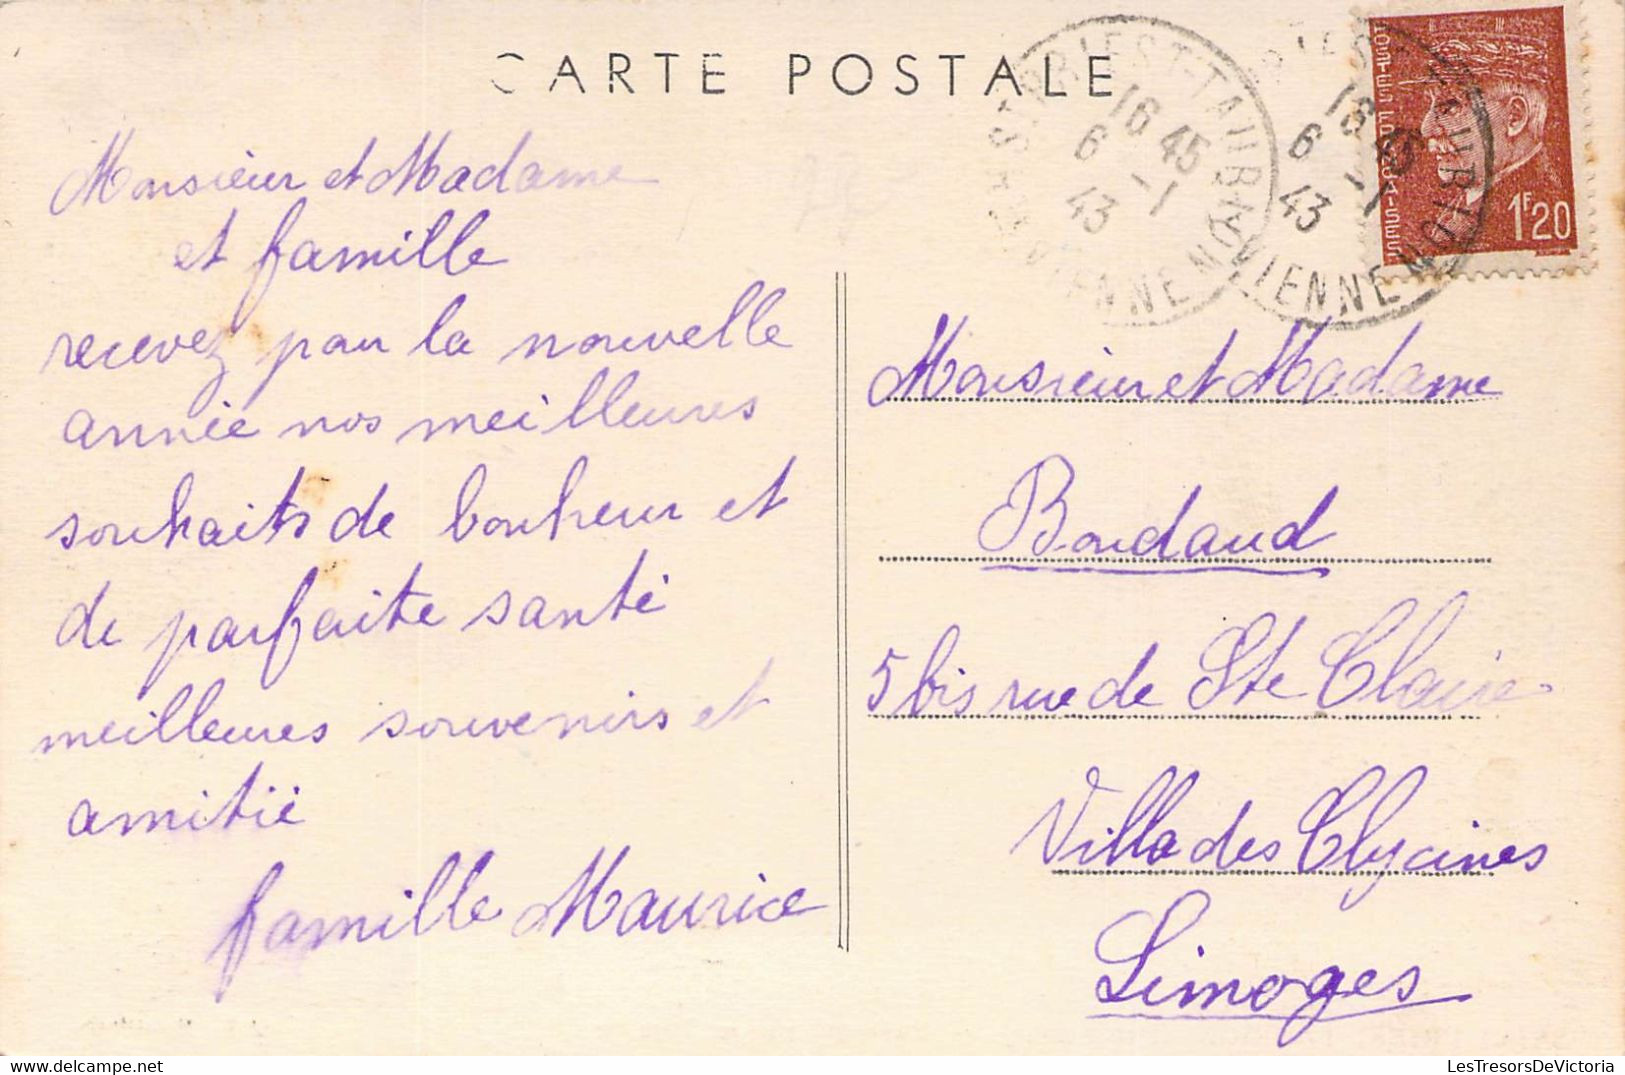 CARTE POSTALE
ST-PRIEST-TAURION
16 45
6 -1
43
HTE VIENNE
16 45
6 -1
43
TAURION
VIENNE
POSTES FRANCAISES
1F20
Monsieur et Madame
et famille
recevez pour la nouvelle
année nos meilleures
souhaits de bonheur et
de parfaite santé
meilleures souvenirs et
amitié
famille Maurice
Monsieur et Madame
Boudaud
5 bis rue de Ste Claire
Villa des Glycines
Limoges
LesTresorsDeVictoria